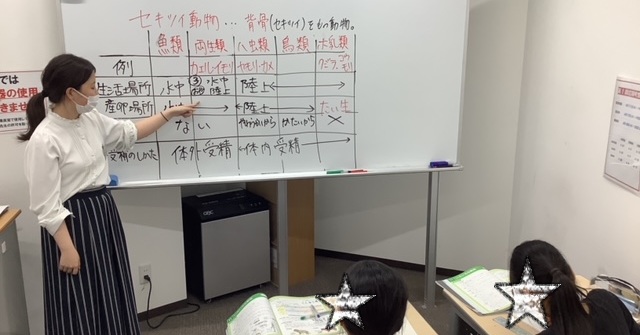 セキツイ動物… 背骨(セキツイ)をもつ動物。
魚類 両生類 ハ虫類 鳥類 ホ乳類
例 カエル・イモリ ヤモリ・カメ クジラ・コウモリ
生活場所 水中 水中 陸上 陸上
産卵場所 水中 陸上 たい生
ない やわらかいから かたいから ×
受精のしかた 体外受精 体内受精
では
器の使用
きません